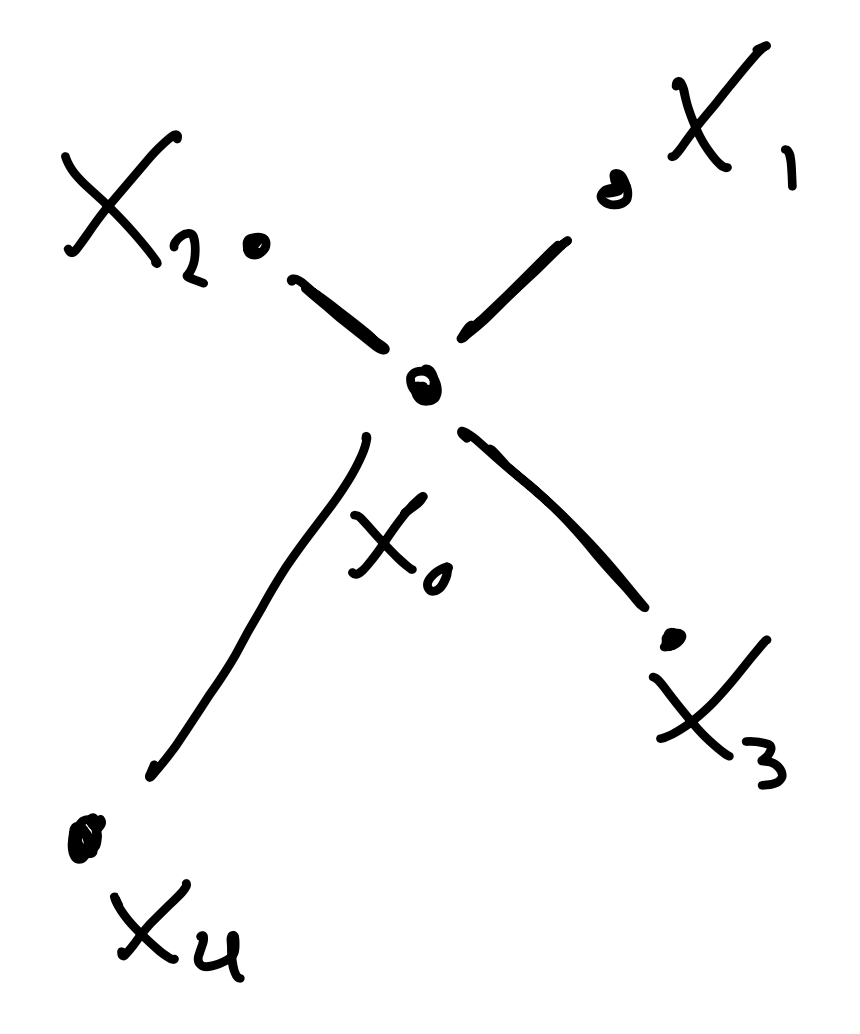 X₁
X₂
X₀
X₃
X₄